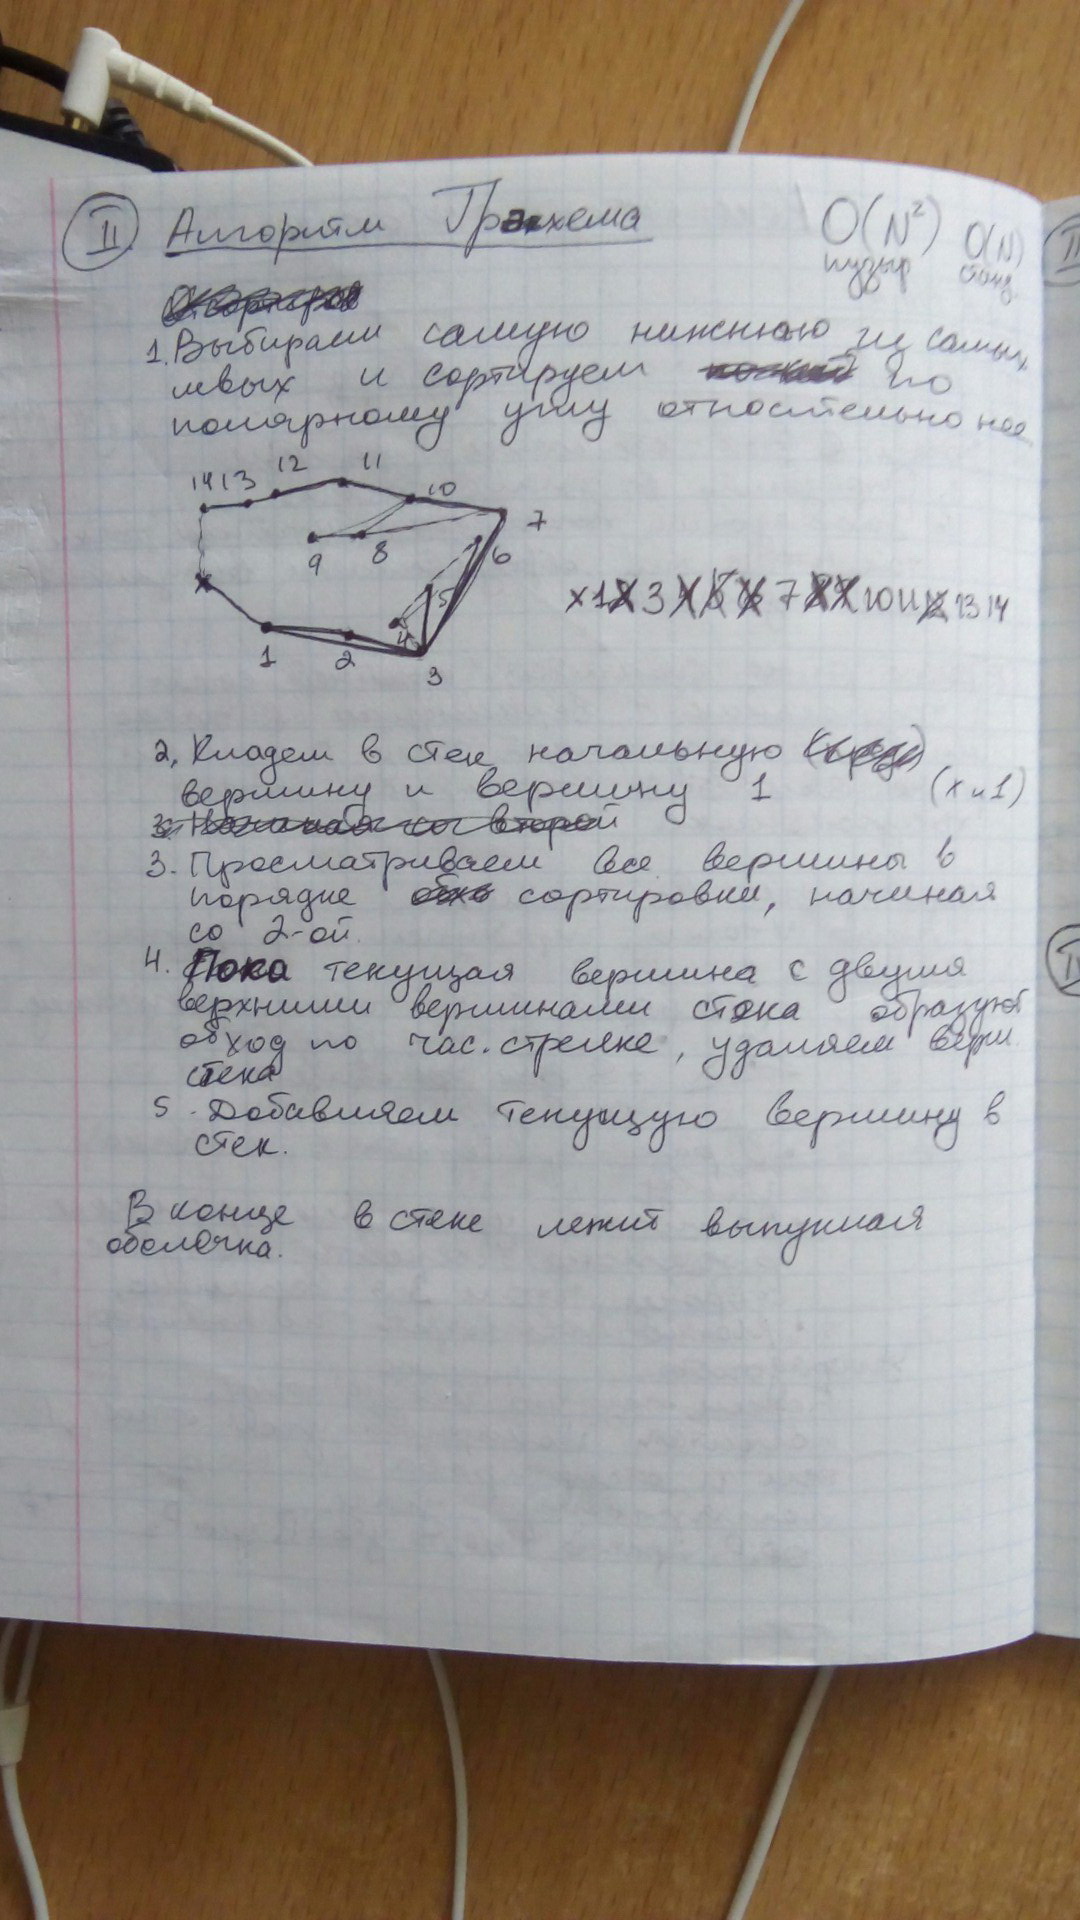 II Алгоритм Грэхема O(N²) O(N)
пузыр станд.
1. Выбираем самую нижнюю из самых
левых и сортируем по
полярному углу относительно нее
14 13 12 11 10
7
9 8 6
5
x 1 2 3 4 5 6 7 8 9 10 11 12 13 14
4
1 2 3
2. Кладем в стек начальную
вершину и вершину 1 (x и 1)
3. Начиная со второй
3. Просматриваем все вершины в
порядке сортировки, начиная
со 2-ой.
4. Пока текущая вершина с двумя
верхними вершинами стека образуют
обход по час. стрелке, удаляем верш.
стека
5. Добавляем текущую вершину в
стек.
В конце в стеке лежит выпуклая
оболочка.